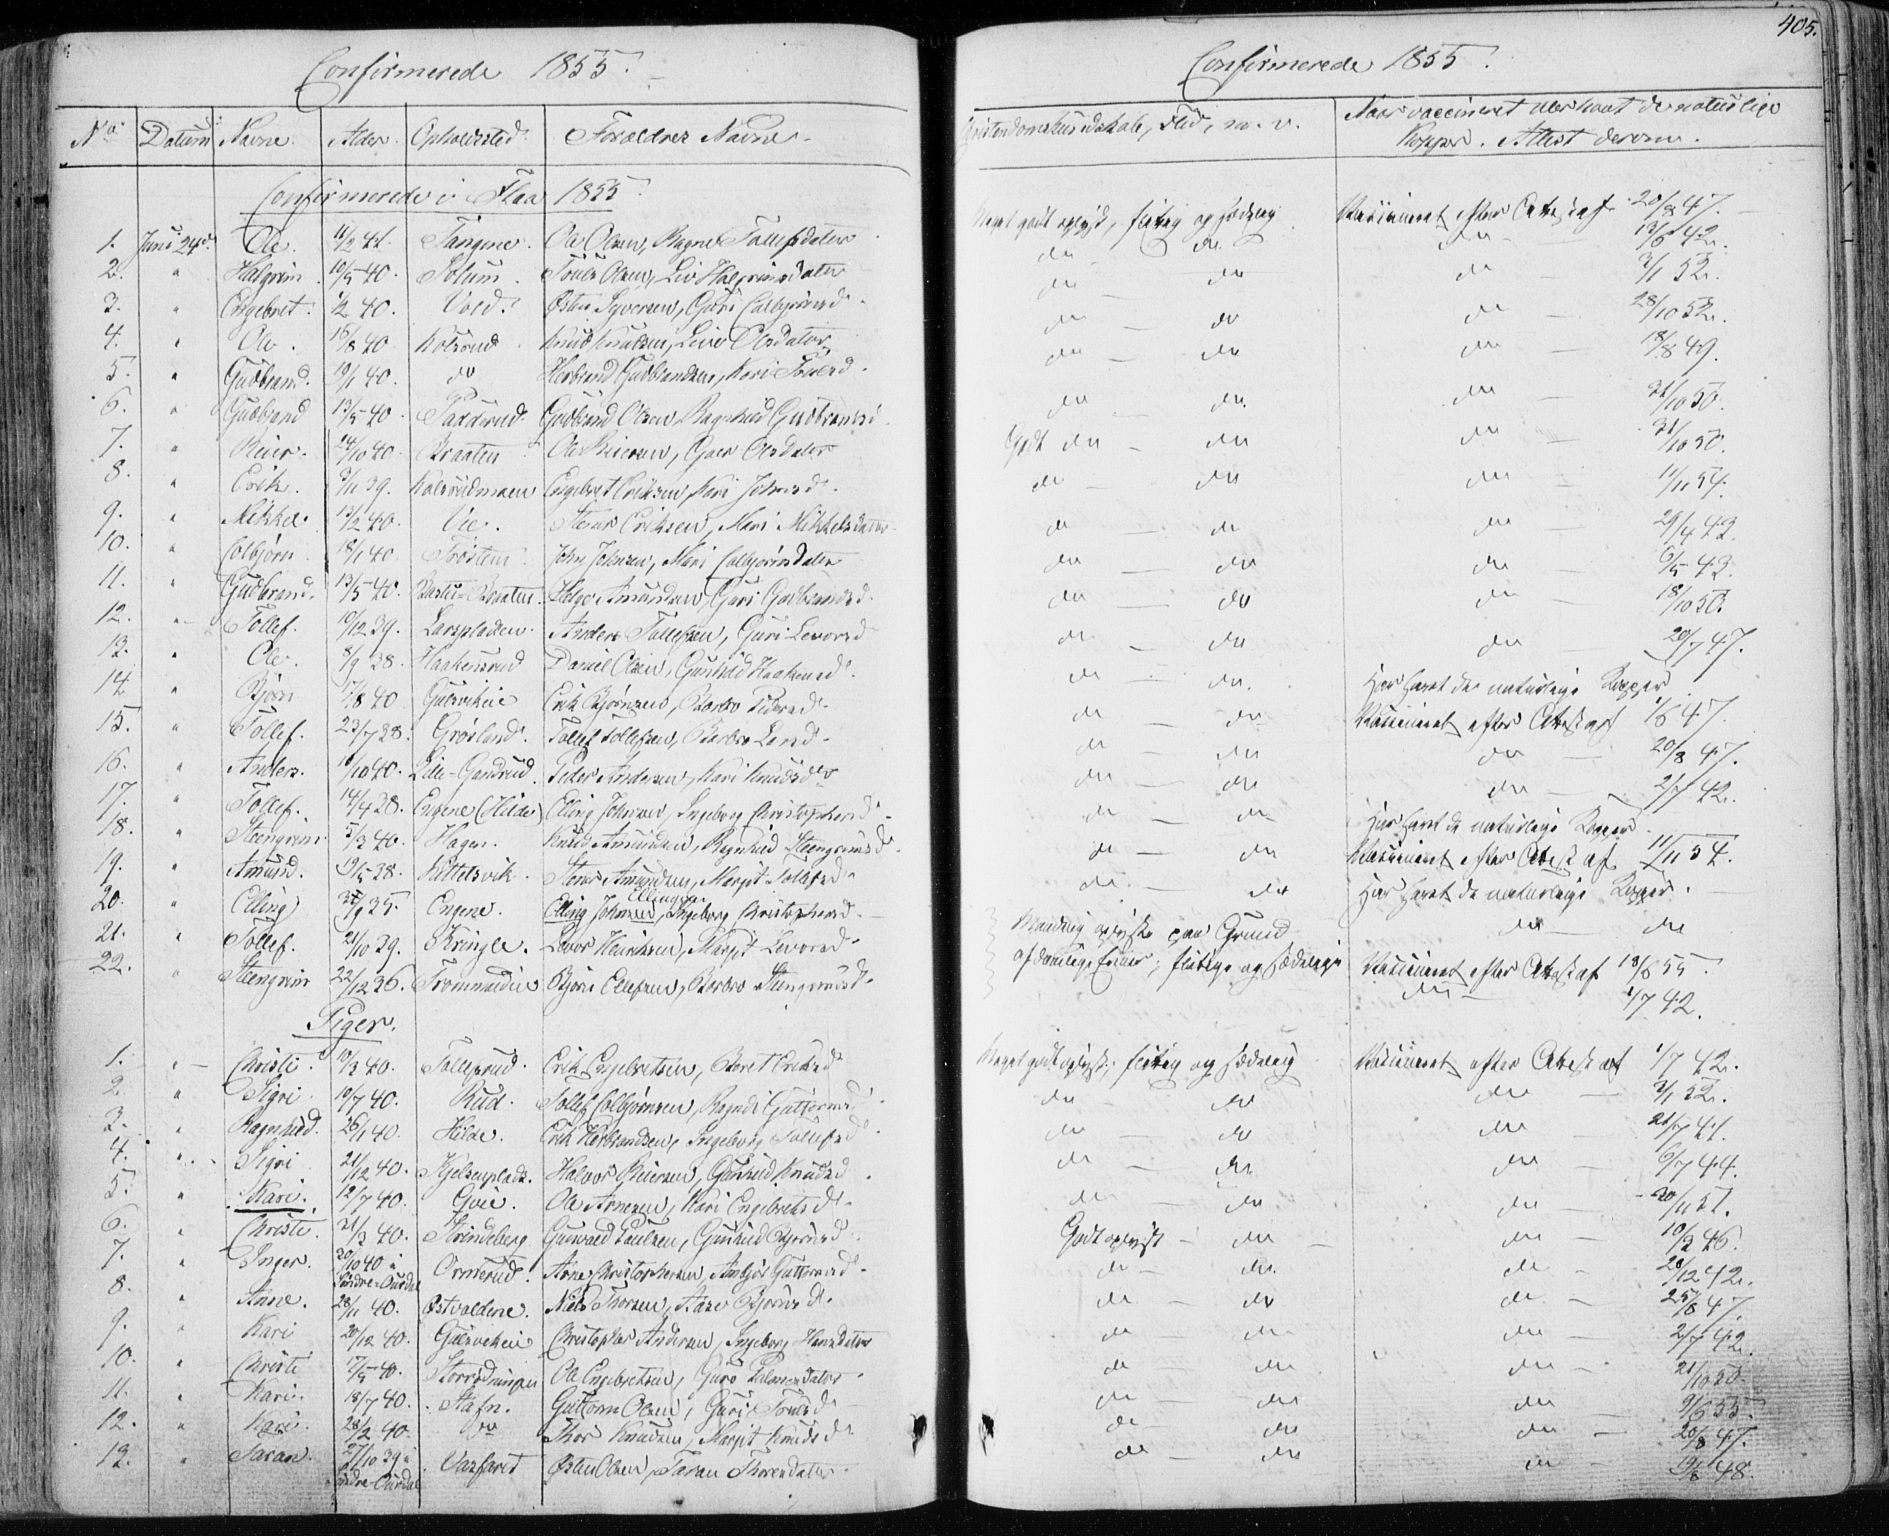 Confirmerede 1855.
No. Datum. Navne. Alder. Opholdssted. Forældres Navne.
Confirmerede i Flaa 1855.
1. Juni 24d. Ole. 11/2 41. Tangene. Ole Olsen, Ragne Tollefsdatter
2. " Halgrim. 10/5 40. Solum. Olsen, Liv Halgrimsdatter
3. " Engebret. 40. Vold. Østen Syversen, Guri Colbjørnsd.
4. " Ole. 16/8 40. Kolsrud. Knud Knudsen, Olsdatter
5. " Gudbrand. 19/1 40. do Herbrand Gudbrandsen, Kari
6. " Gudbrand 13/5 40. Gudbrand Olsen, Ragnhild Gudbrandsd.
7. " Reier. 14/10 40. Braaten Ole Reiersen, Olsdatter
8. " Erik. 3/11 39. Kolsrudmoen Engebret Eriksen, Kari Johnsd.
9. " Mikkel. 13/2 40. Vie. Stener Eriksen, Mari Mikkelsdatter
10. " Colbjørn 18/1 40 Trøsten John Johnsen, Mari Colbjørnsdatter
11. " Gudbrand. 13/5 40. Helge Amundsen, Guri Gudbrandsd.
12. " Tollef. 10/12 39. Larspladsen. Anders Tollefsen, Guri Levorsd
13. " Ole. 8/9 38. Haakensrud Daniel Olsen, Gunhild Haakensd.
14. " Bjørn 17/8 40 Gulsvikeie Erik Bjørnsen, Barbro
15. " Tollef. 23/7 38. Grøsland. Tollef Tollefsen, Barbro Larsd.
16. " Anders. 10/10 40. Lille-Gandrud. Peder Andersen, Kari Knudsdr
17. " Tollef. 14/4 38. Engene (Hilde) Elling Johnsen, Ingeborg Christophersd.
18. " Steengrim 5/3 40. Hagen. Knud Amundsen, Ragnhild Steengrimsd.
19. " Amund. 19/5 38. Kittelsvik. Stener Amundsen, Margit Tollefsd.
20. " Elling 35. Engene. Elling Johnsen, Ingeborg Christophersd.
21. " Tollef. 21/10 39. Kringle. Levor Henriksen, Margit Levorsd.
22. " Steengrim 22/12 36. Trommaldeie Bjørn Ellefsen, Barbro Steengrimsd.
Piger.
1. " Christi. 10/3 40. Tollefsrud. Erik Engebretsen, Beret Eriksd
2. " Sigri. 10/7 40. Rud. Tollef Colbjørnsen, Guttormsd
3. " Ragnhild. 26/1 40. Hilde. Erik Herbrandsen, Ingeborg Tollefsd
4. " Sigri 21/12 40. Halvor Reiersen, Gunhild Knudsd
5. " Kari. 12/7 40. Gvie. Ole Arnesen, Kari Engebretsd.
6. " Christi. 21/3 40. Strindeberg Gunvald Paulsen, Gunhild Bjørnsd.
7. " Inger. 20/10 40 i Søndre-Ourdal Ormerud. Arne Christophersen, Ambjør Guttormsd.
8. " Anne. 28/11 40. Østvoldene. Niels Thorsen, Aase Bjørnsd.
9. " Kari 20/12 40. Gulsvikeie Christopher Andersen, Ingeborg Hansdatter
10. " Christi 17/5 40. Ole Engebretsen, Guro Palmesdatter
11. " Kari. 18/7 40. Stafn. Guttorm Olsen, Guri
12. " Kari. 28/2 40. do Thor Knudsen, Margit Knudsd.
13. " Taran. 27/10 39 i Søndre-Ourdal Vasfaret Østen Olsen, Taran Thoresdatter
405.
Confirmerede 1855.
Christendomskundskab, Flid, m. v. Naar vaccineret eller havt de naturlige Kopper. Attest derom.
Meget godt oplyst, flittig og sædelig. Vaccineret efter Attest af 20/8 47.
do do do 13/6 42.
do do do 3/1 52.
do do do 28/10 52.
do do do 18/8 49.
do do do 31/10 50.
Godt do do do 31/10 50.
do do do 11/11 54.
do do do 29/4 43.
do do do 6/5 43.
do do do 18/10 50.
do do do 20/7 47.
do do Har havt de naturlige Kopper
do do Vaccineret efter Attest af 47.
do do do 20/8 47.
do do do 2/7 42.
do do Har havt de naturlige Kopper
do do Vaccineret efter Attest af 11/11 54.
do do Har havt de naturlige Kopper.
Maadelig oplyste paa Grund do do
af daarlige Evner, flittige og sædelige Vaccineret efter Attest af 18/6 55.
do 1/7 42.
Meget godt oplyst, flittig og sædelig Vaccineret efter Attest af 1/7 42.
do do do 3/1 52.
do do do 21/7 41.
do do do 6/7 44.
do do do 20/11 51.
Godt oplyst do do 10/3 46.
do do do 28/12 42.
do do do 25/8 47.
do do do 2/7 42.
do do do 21/10 50.
do do do 9/6 55.
do do do 20/8 47.
do do do 19/8 48.